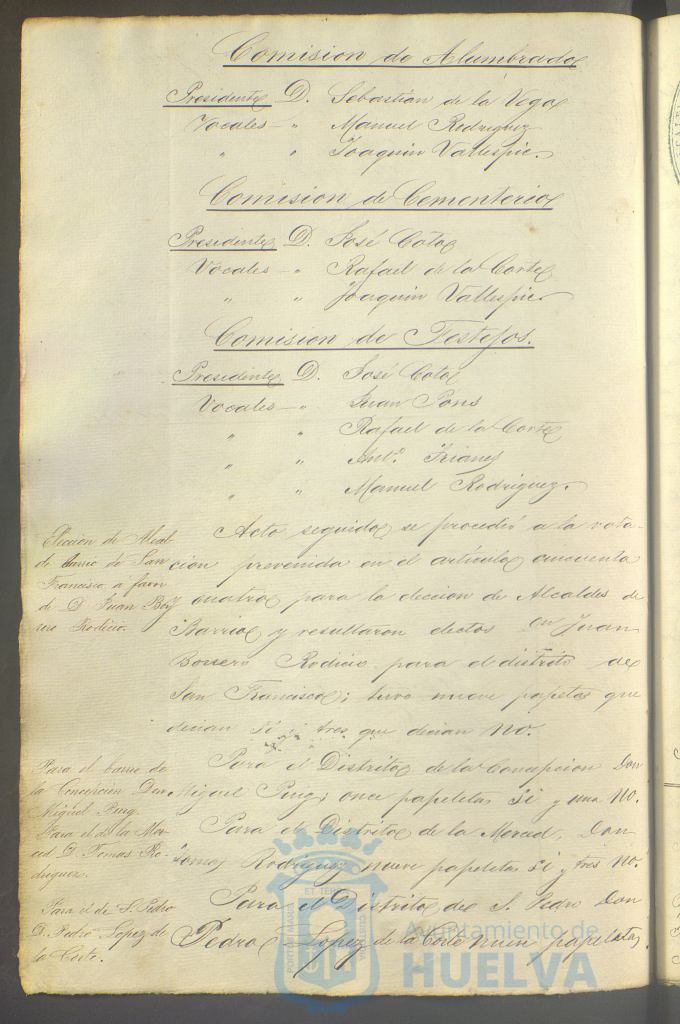 Comision de Alumbrado
Presidente D. Sebastián de la Vega
Vocales " Manuel Rodriguez
" " Joaquin Vallespin.
Comision de Cementerio
Presidente D. José Coto
Vocales " Rafael de la Corte
" " Joaquin Vallespin
Comision de Festejos.
Presidente D. José Coto
Vocales " Juan Pons
" " Rafael de la Corte
" " Ant.º
" " Manuel Rodriguez.
Eleccion de Alcal-
de barrio de San
Francisco a favor
de D Juan
Rodicio.
Acto seguido se procedió a la vota-
cion prevenida en el artículo cincuenta
y cuatro para la eleccion de Alcaldes de
Barrio y resultaron electos Dn Juan
Rodicio para el distrito de
San Francisco; tuvo nueve papeletas que
decian Si y tres que decian No.
Para el barrio de
la Concepcion Don
Miguel Puig.
Para el Distrito de la Concepcion Don
Miguel Puig; once papeletas Si y una No.
Para el de la Mer-
ced D. Tomas Ro-
driguez.
Para el Distrito de la Merced, Don
Tomas Rodriguez nueve papeletas Si y tres No.
Para el de S. Pedro
D. Pedro Lopez de
la Corte.
Para el Distrito de S. Pedro Don
Pedro Lopez de la Corte nueve papeletas
ET TERRÆ
PORTUS MARIS
Ayuntamiento de
HUELVA